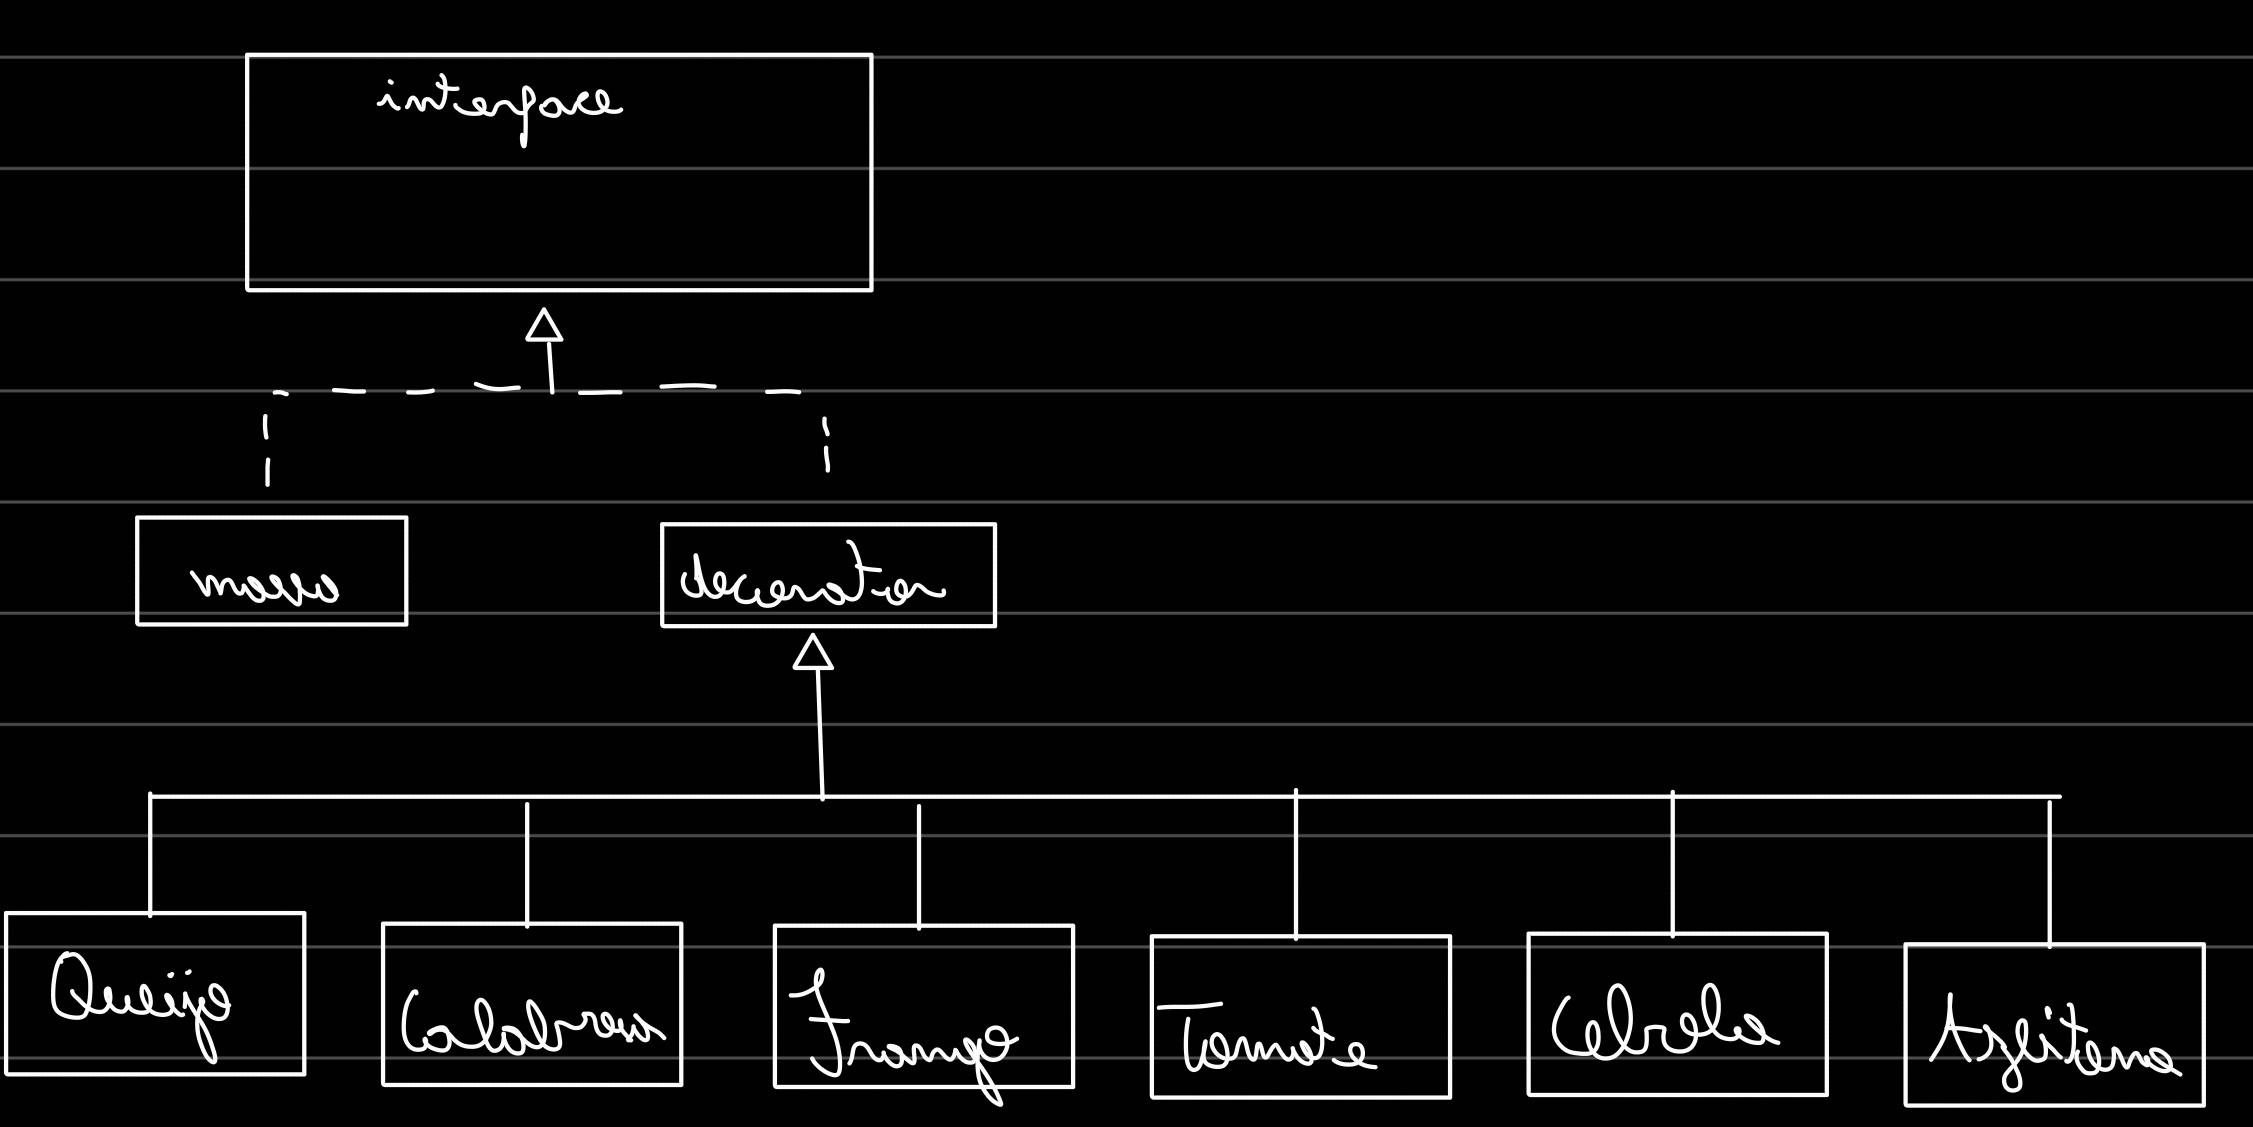 interface
massa
decorator
Queijo
Calabresa
Frango
Tomate
Cebola
Azeitona